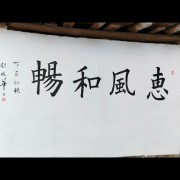 惠風和暢
丁酉初秋